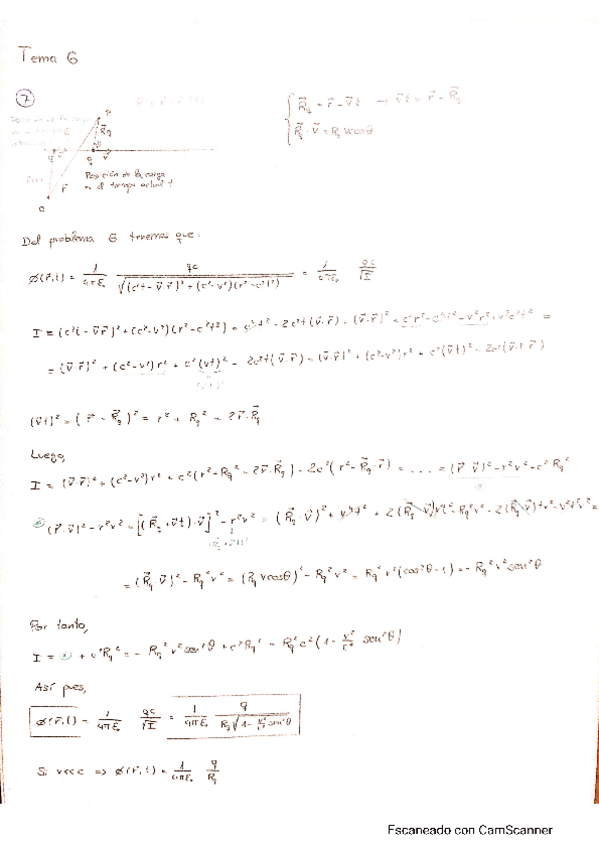 Tema 6
7
P
R⃗q
q
v⃗
r⃗
Posición de la carga
en el tiempo actual t
O
{ R⃗q = r⃗ - v⃗t → v⃗t = r⃗ - R⃗q
R⃗q · v⃗ = Rq v cosθ
Del problema 6 tenemos que:
ϕ(r⃗,t) = 1/(4πε₀) qc/√((c²t - v⃗·r⃗)² + (c²-v²)(r²-c²t²)) = 1/(4πε₀) qc/√I
I = (c²t - v⃗·r⃗)² + (c²-v²)(r²-c²t²) = c⁴t² - 2c²t(v⃗·r⃗) + (v⃗·r⃗)² + c²r² - c⁴t² - v²r² + v²c²t² =
= (v⃗·r⃗)² + (c²-v²)r² + c²(vt)² - 2c²t(v⃗·r⃗) = (v⃗·r⃗)² + (c²-v²)r² + c²(v⃗t)² - 2c²(v⃗t·r⃗)
(v⃗t)² = (r⃗ - R⃗q)² = r² + Rq² - 2r⃗·R⃗q
Luego,
I = (v⃗·r⃗)² + (c²-v²)r² + c²(r² + Rq² - 2r⃗·R⃗q) - 2c²(r² - R⃗q·r⃗) = .... = (r⃗·v⃗)² - r²v² + c²Rq²
(r⃗·v⃗)² - r²v² = [(R⃗q + v⃗t)·v⃗]² - r²v² = (R⃗q·v⃗)² + v⁴t² + 2(R⃗q·v⃗)v²t - Rq²v² - 2(R⃗q·v⃗)tv² - v²t²v² =
= (R⃗q·v⃗)² - Rq²v² = (Rq v cosθ)² - Rq²v² = Rq²v²(cos²θ - 1) = - Rq²v² sen²θ
Por tanto,
I = + c²Rq² = - Rq²v² sen²θ + c²Rq² = Rq²c²(1 - v²/c² sen²θ)
Así pues,
ϕ(r⃗,t) = 1/(4πε₀) qc/√I = 1/(4πε₀) q/(Rq√(1 - v²/c² sen²θ))
Si v<<c ⇒ ϕ(r⃗,t) = 1/(4πε₀) q/Rq
Escaneado con CamScanner